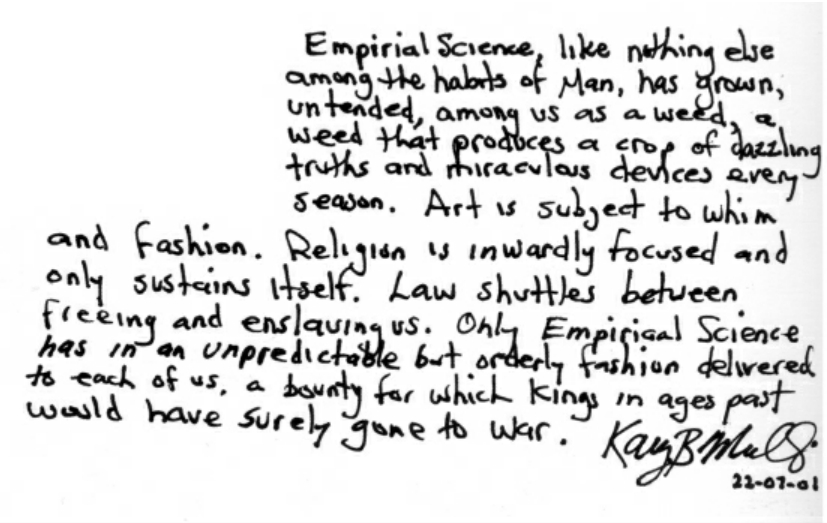 Empirial Science, like nothing else
among the habits of Man, has grown,
untended, among us as a weed, a
weed that produces a crop of dazzling
truths and miraculous devices every
season. Art is subject to whim
and fashion. Religion is inwardly focused and
only sustains itself. Law shuttles between
freeing and enslaving us. Only Empirical Science
has in an unpredictable but orderly fashion delivered
to each of us, a bounty for which Kings in ages past
would have surely gone to war.
Kary B Mullis
22-07-01